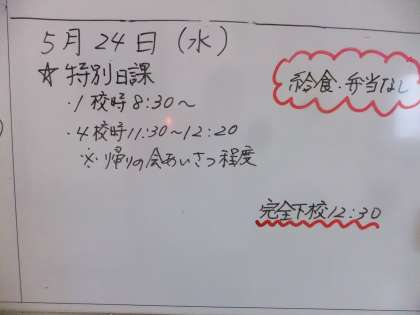 5月24日(水)
☆特別日課
給食・弁当なし
・1校時8:30〜
・4校時11:30〜12:20
※帰りの会あいさつ程度
完全下校12:30